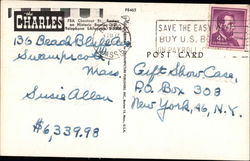 The CHARLES
P8465
POST CARD
SAVE THE EASY
BUY U.S. BO
4¢
136 Beach Bluff Ave
Swampscott
Mass.
Susie Allan
$6,339.98
Gift Show Case,
P.O. Box 308
New York, 46, N.Y.